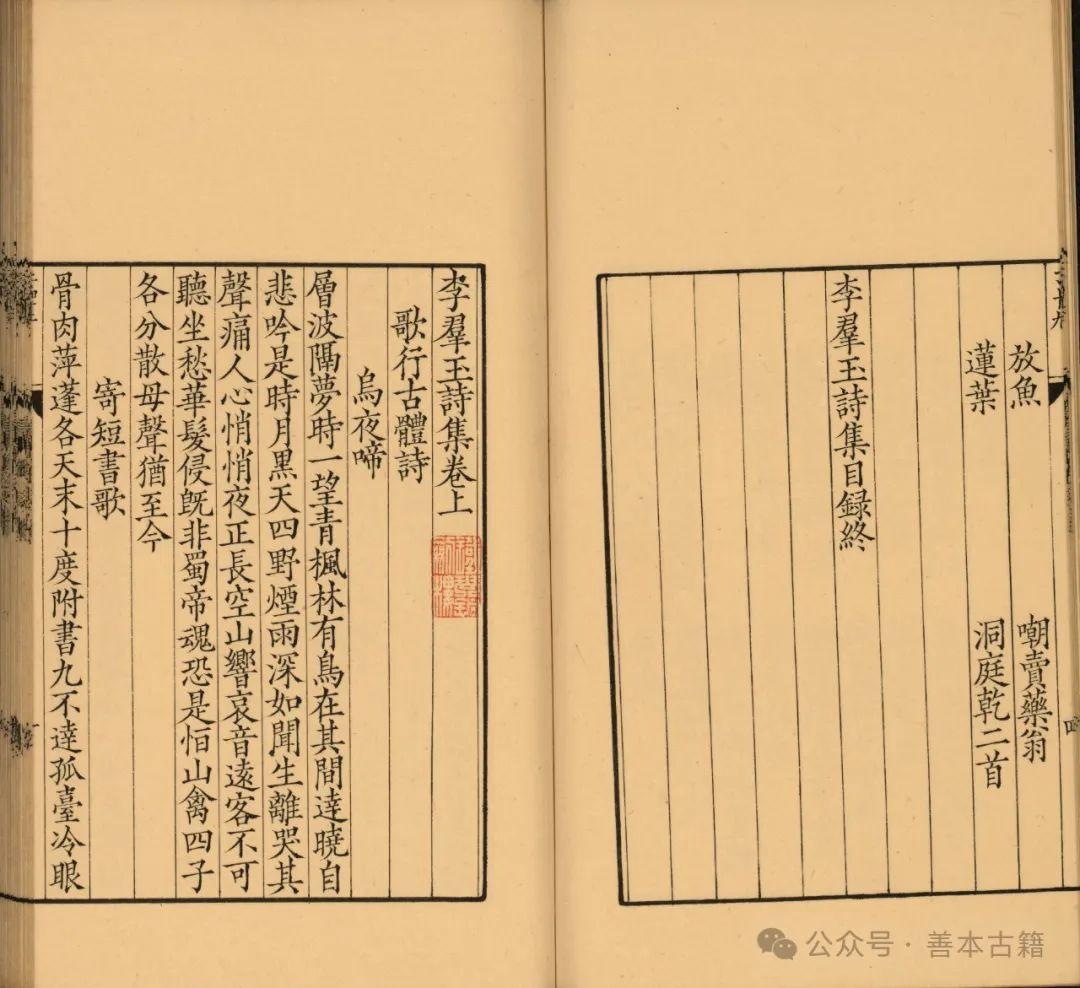 放魚　嘲賣藥翁
蓮葉　洞庭乾二首
李羣玉詩集目録終
李羣玉詩集卷上
歌行古體詩
烏夜啼
層波隔夢時一望青楓林有鳥在其間達曉自
悲吟是時月黑天四野煙雨深如聞生離哭其
聲痛人心悄悄夜正長空山響哀音遠客不可
聽坐愁華髮侵旣非蜀帝魂恐是恒山禽四子
各分散母聲猶至今
寄短書歌
骨肉萍蓬各天末十度附書九不達孤臺冷眼
公众号·善本古籍